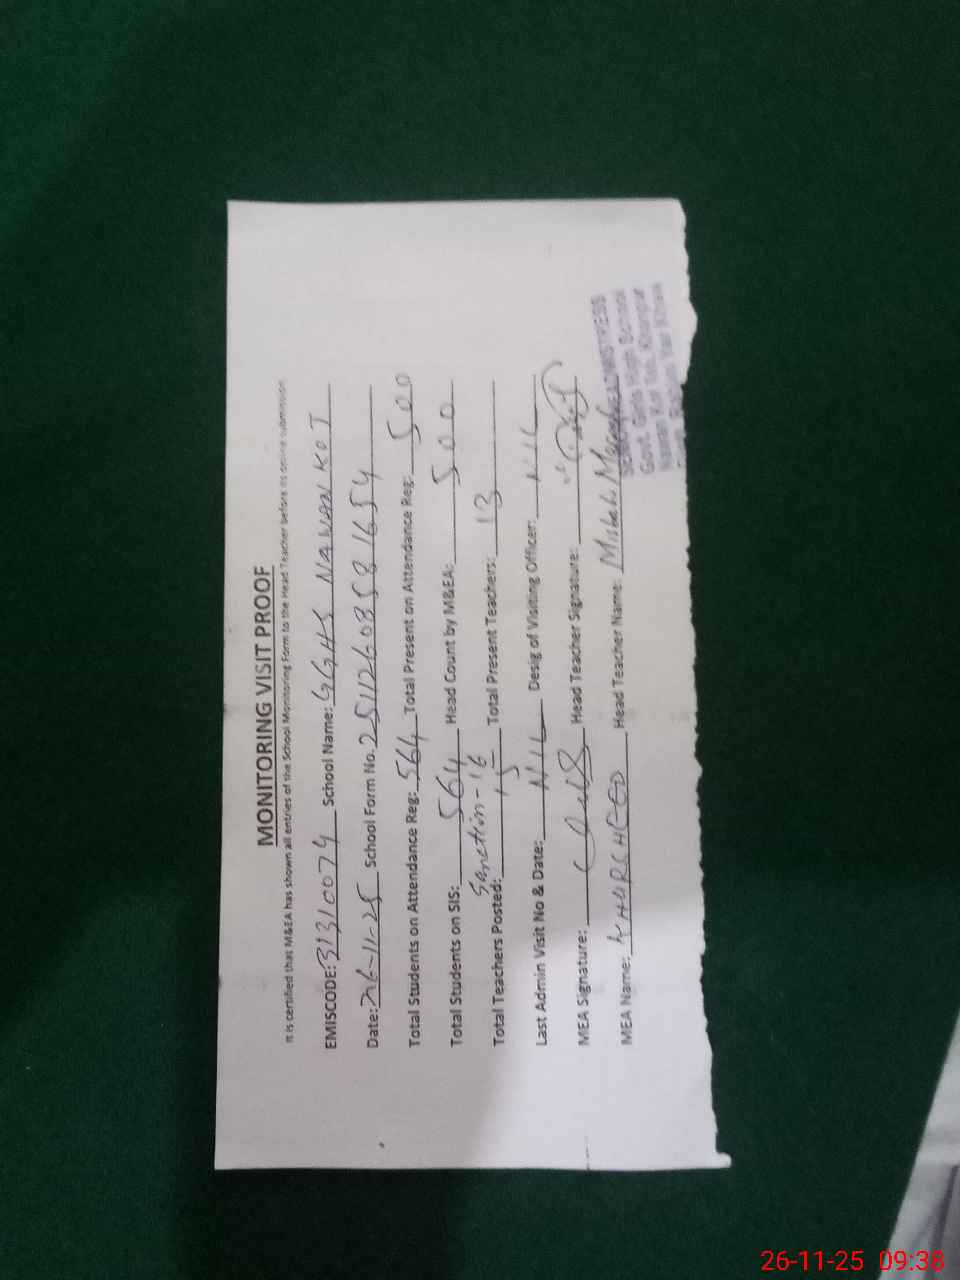 MONITORING VISIT PROOF
It is certified that M&EA has shown all entries of the School Monitoring Form to the Head Teacher before its online submission
EMISCODE: 31310074 School Name: GGHS NAWAN KOT
Date: 26-11-25 School Form No. 251126085816 54
Total Students on Attendance Reg: 564 Total Present on Attendance Reg: 500
Total Students on SIS: 564 Head Count by M&EA: 500
Sanction-16
Total Teachers Posted: 15 Total Present Teachers: 13
Last Admin Visit No & Date: NIL Desig of Visiting Officer: NIL
MEA Signature: Head Teacher Signature:
MEA Name: KHURSHEED Head Teacher Name: Misbah
HEADMISTRESS
Govt. Girls High School
Nawan Kot Teh. Khanpur
Rahim Yar Khan
26-11-25 09:38